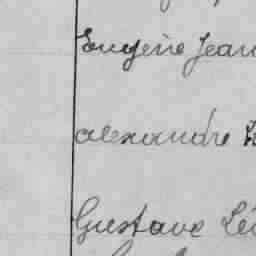 Eugène Jean
alexandre
Gustave Lé